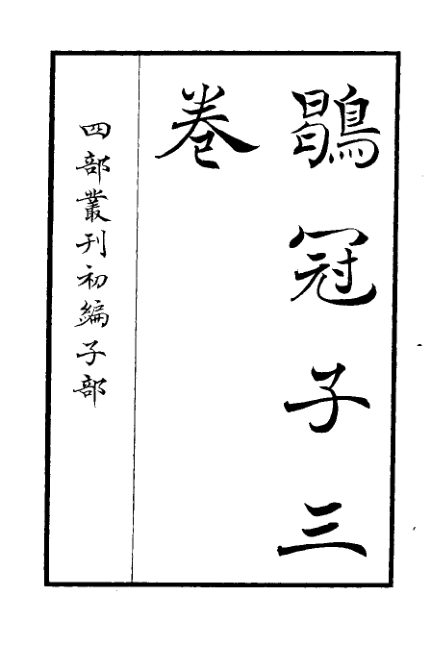 鶡冠子三
卷
四部叢刊初編子部